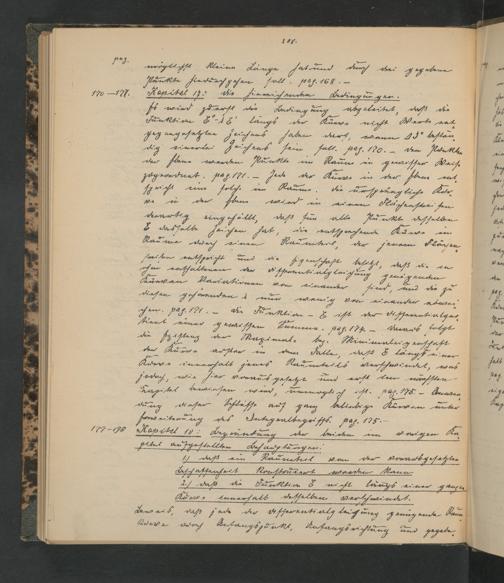 208.
pag. möglichst kleine Länge hat und durch drei gegebene
Punkte hindurchgehen soll. pag. 168. —
170–178. Kapitel 17: die hinreichenden Bedingungen.
Es wird zuerst die Bedingung abgeleitet, daß die
Funktion E längs der Kurve nicht Werte ent-
gegengesetzten Zeichens haben darf, wenn beständ-
dig einerlei Zeichens sein soll. pag. 170. — den Punkten
der Ebene werden Punkte im Raum in gewisser Weise
zugeordnet. pag. 171. — Jede der Kurve in der Ebene ent-
spricht eine solche im Raume. die ursprüngliche Kur-
ve in der Ebene wird in einen Flächenstreifen
derartig eingehüllt, daß für alle Punkte desselben
E dasselbe Zeichen hat, die entsprechende Kurve im
Raume durch einen Raumteil, der jenem Flächen-
streifen entspricht und die Eigenschaft besitzt, daß die in
ihm enthaltenen der Differentialgleichung genügenden
Kurven Variationen von einander sind, und die zu
diesen gehörenden nur wenig von einander abwei-
chen. pag. 171. — die Funktion E ist der Differentialquo-
tient einer gewissen Summe. pag. 174. — daraus folgt
die Existenz der Maximal- bzg. Minimaleigenschaft
der Kurve außer in dem Falle, daß E längs einer
Kurve innerhalb jenes Raumteils verschwindet, was
jedoch, wie hier vorausgesetzt und erst im nächsten
Kapitel bewiesen wird, unmöglich ist. pag. 175 — Anwen-
dung dieser Schlüsse auf ganz beliebige Kurven unter
Erweiterung des Integralbegriffs. pag. 175. —
Kapitel 18: Begründung der beiden im vorigen Ka-
pitel aufgestellten Behauptungen:
1) daß ein Raumteil von der vorausgesetzten
Beschaffenheit konstruiert werden kann
2) daß die Funktion E nicht längs einer ganzen
Kurve innerhalb desselben verschwindet.
Beweis, daß jede der Differentialgleichung genügende Raum-
kurve durch Anfangspunkt, Anfangsrichtung und gegebe-